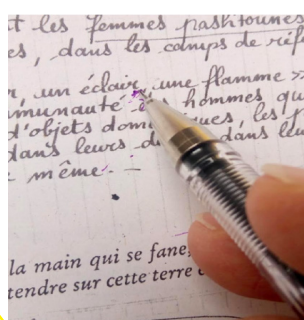 t les femmes pashtounes
es, dans les camps de réf
r, un éclair, une flamme »
munauté hommes qu
d'objets dom ques, les p
dans leurs d dans leu
même. –
la main qui se fane,
tendre sur cette terre